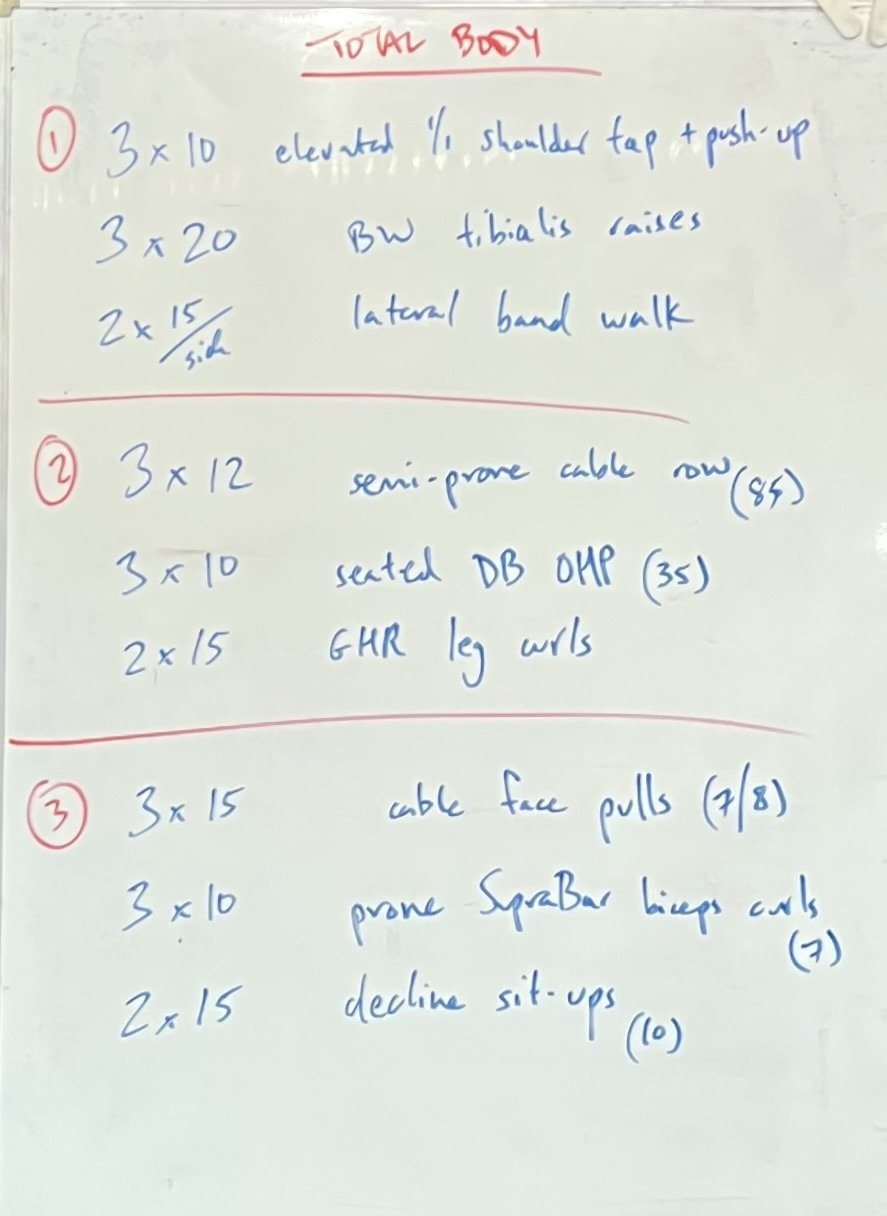 TOTAL BODY
① 3 x 10 elevated % shoulder tap + push-up
3 x 20 BW tibialis raises
2 x 15/side lateral band walk
② 3 x 12 semi-prone cable row (85)
3 x 10 seated DB OHP (35)
2 x 15 GHR leg curls
③ 3 x 15 cable face pulls (7/8)
3 x 10 prone SupraBar biceps curls
(7)
2 x 15 decline sit-ups
(10)